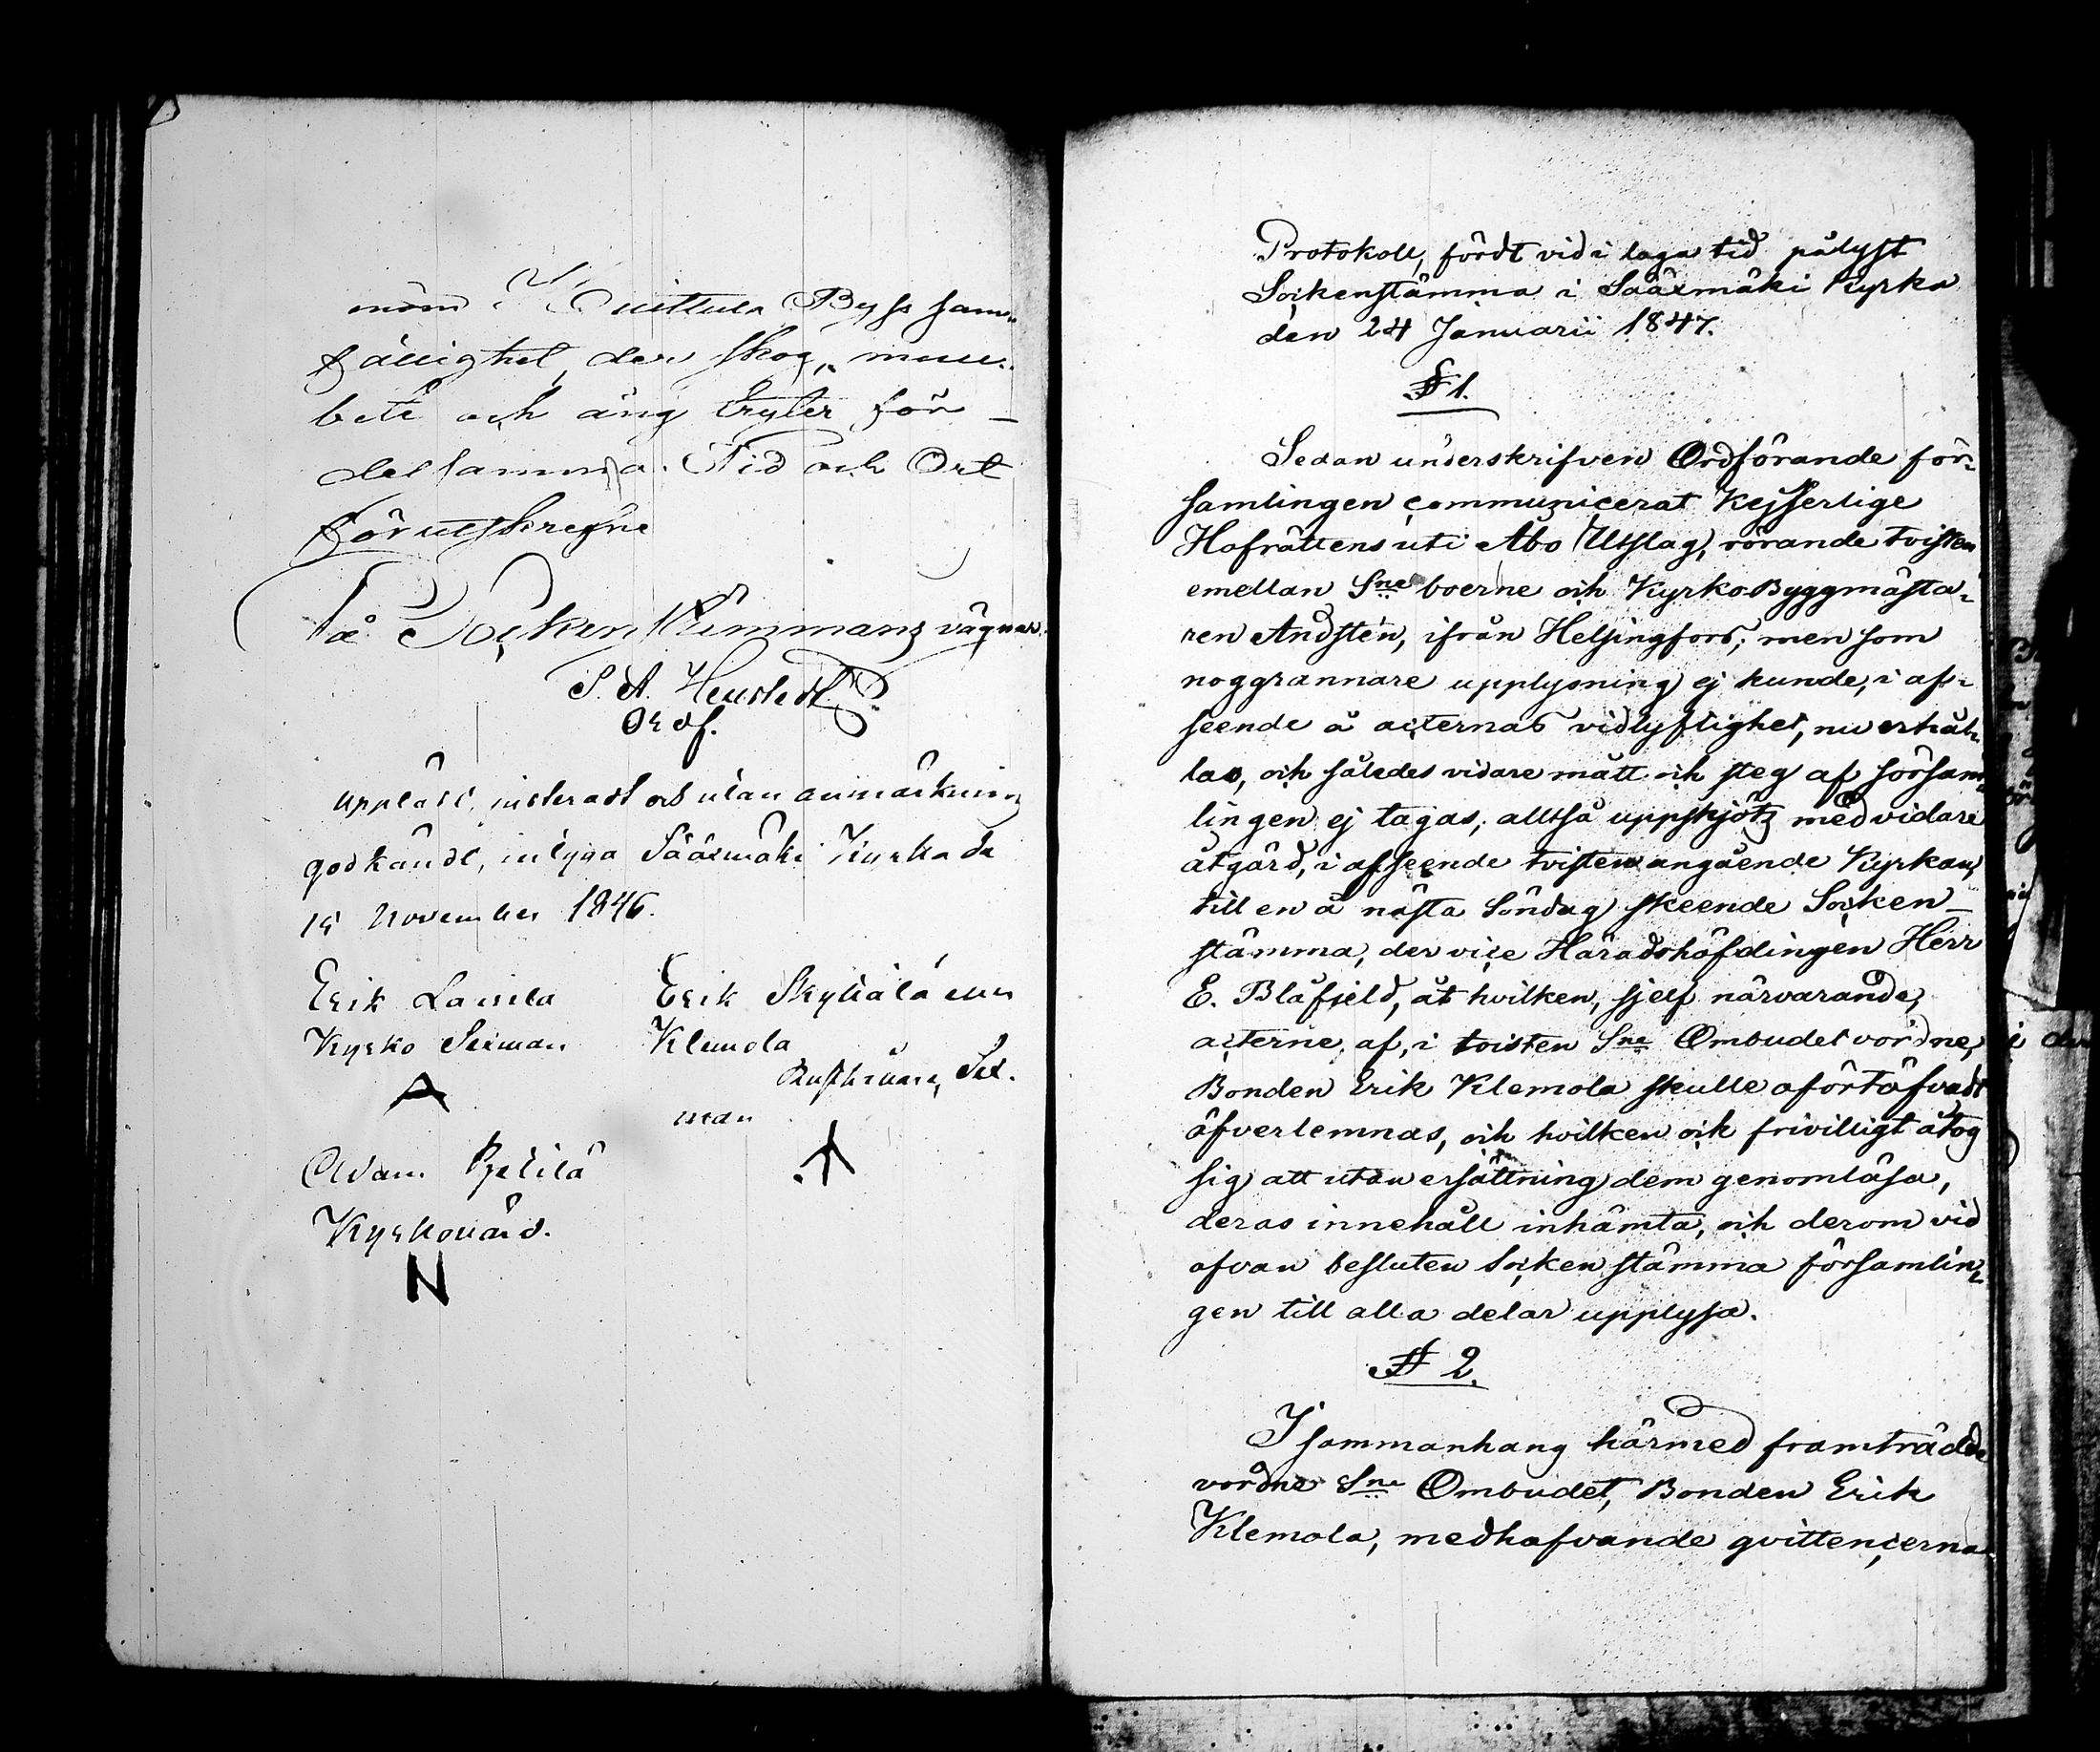 nom Huittula Byss sam-
fällighet, der skog, mul-
bete och äng tryter för
det samma. Tid och Ort
förutskrefne
På Sockenstämmans vägnar
S. A. Heurstedt
Ordf.
Uppläst, justeradt och utan anmärkning
godkändt, intyga Sääxmäki Kyrka de
15 November 1846.
Erik Laurila
Kyrko Sexman
A
Erik Skyttälä eller
Klemola
Rusthållare, Sex-
man
Adam Pjetilä
Kyrkovärd.
N
Protokoll, fördt vid i laga tid pålyst
Sockenstämma i Sääxmäki Kyrka
den 24 Januarii 1847.
§ 1.
Sedan underskrifven Ordförande för-
samlingen communicerat Kejserlige
Hofrättens uti Åbo Utslag, rörande tvisten
emellan Sne boerne och Kyrko Byggmästa-
ren Andstén, ifrån Helsingfors; men som
noggrannare upplysning ej kunde, i af-
seende å acternas vidlyftighet, nu erhål-
las, och således vidare mått och steg af försam-
lingen ej tagas; alltså uppskjöts med vidare
åtgärd, i afseende tvisten angående Kyrkan,
till en å nästa Söndag skeende Socken-
stämma, der vice Häradshöfdingen Herr
E. Blåfjeld, åt hvilken, sjelf närvarande,
acterne af, i tvisten Sne Ombudet vordne,
Bonden Erik Klemola skulle oförtöfvadt
öfverlemnas, och hvilken ock frivilligt åtog
sig att utan ersättning dem genomläsa,
deras innehåll inhämta, och derom vid
ofvan besluten Sockenstämma församlin-
gen till alla delar upplysa.
§ 2.
I sammanhang härmed framträdde
vordne Sne Ombudet, Bonden Erik
Klemola, medhafvande qvittencerna